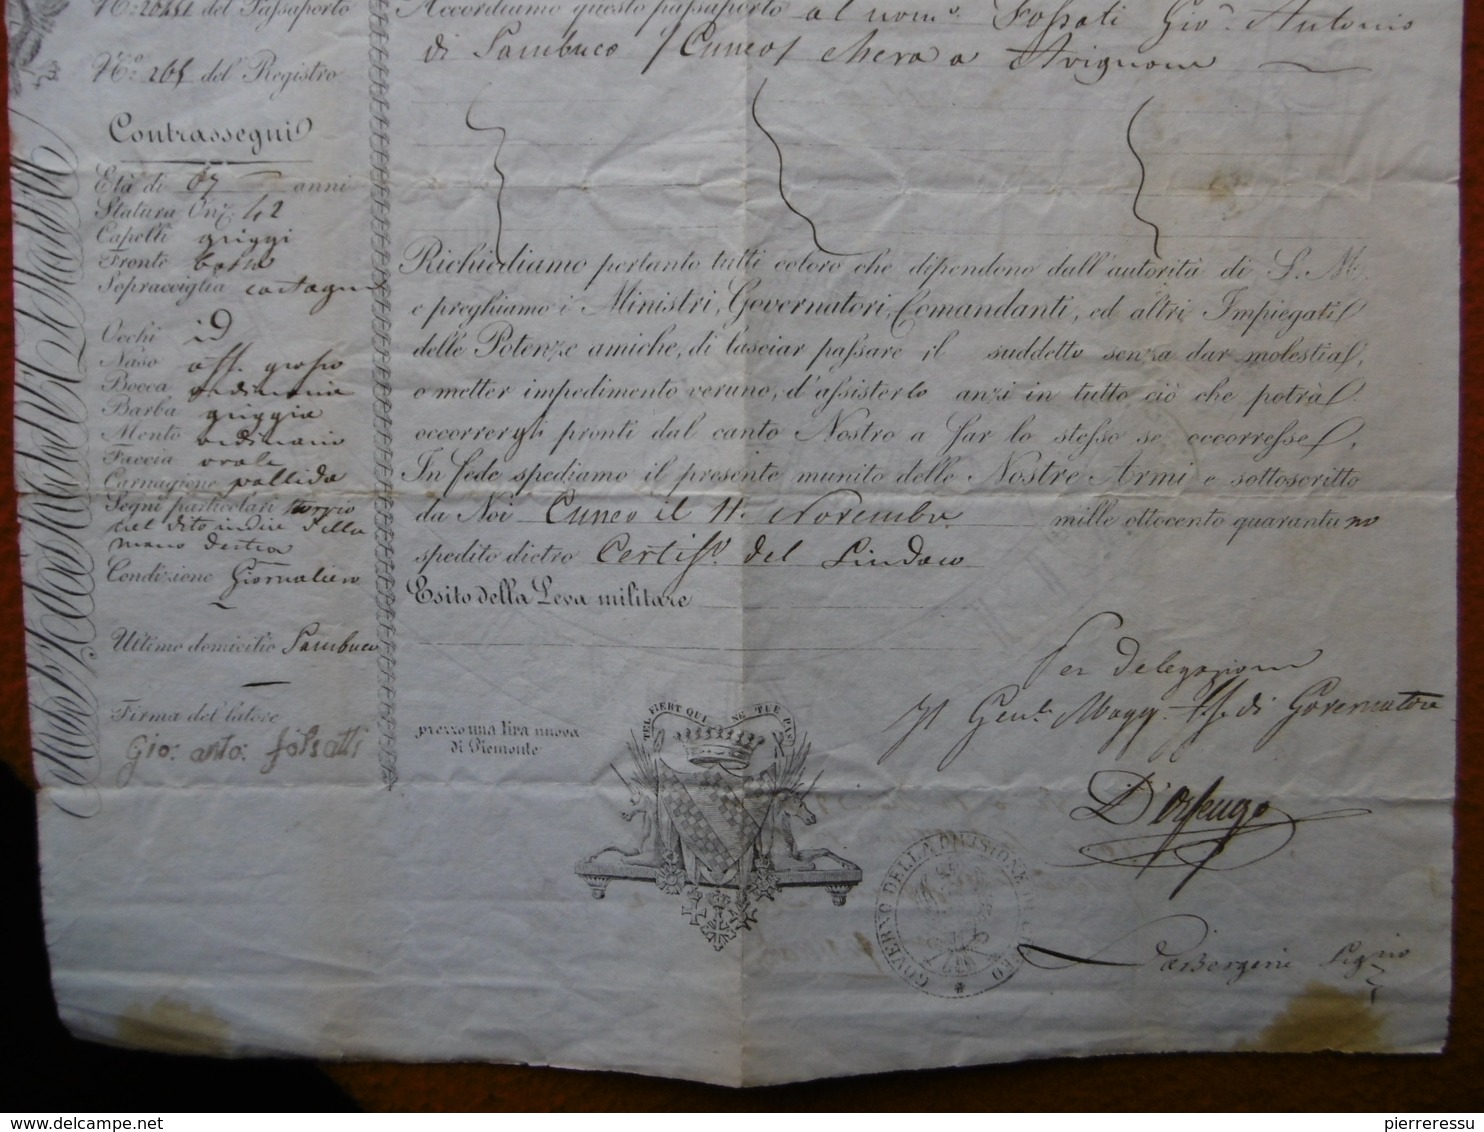 N.° 20451 del Passaporto
N.° 265 del Registro
Contrassegni
Età di 67 anni
Statura Onz. 42
Capelli griggi
Fronte bassa
Sopracciglia castagne
Occhi id
Naso aff. grosso
Bocca ordinaria
Barba griggia
Mento ordinario
Faccia ovale
Carnagione pallida
Segni particolari
dito indice della
mano destra
Condizione Giornaliere
Ultimo domicilio Sambuco
Firma del latore
Gio: anto: fossatti
Accordiamo questo passaporto al nom.° Fossati Gio. Antonio
di Sambuco /Cuneo/ a Avignone
Richiediamo pertanto tutti coloro che dipendono dall'autorità di S. M.
e preghiamo i Ministri, Governatori, Comandanti, ed altri Impiegati
delle Potenze amiche, di lasciar passare il suddetto senza dar molestia,
o metter impedimento veruno, d'assisterlo anzi in tutto ciò che potrà
occorrergli pronti dal canto Nostro a far lo stesso se occorresse.
In fede spediamo il presente munito delle Nostre Armi e sottoscritto
da Noi Cuneo il 11. Novembre mille ottocento quarantuno
spedito dietro Certif.° del Sindaco
Esito della Leva militare
Per delegazione
Il Gen.le Magg. ff. di Governatore
prezzo una lira nuova
di Piemonte
TEL FIERT QUI NE TUE PAS
GOVERNO DELLA DIVISIONE DI CUNEO
pierreressu